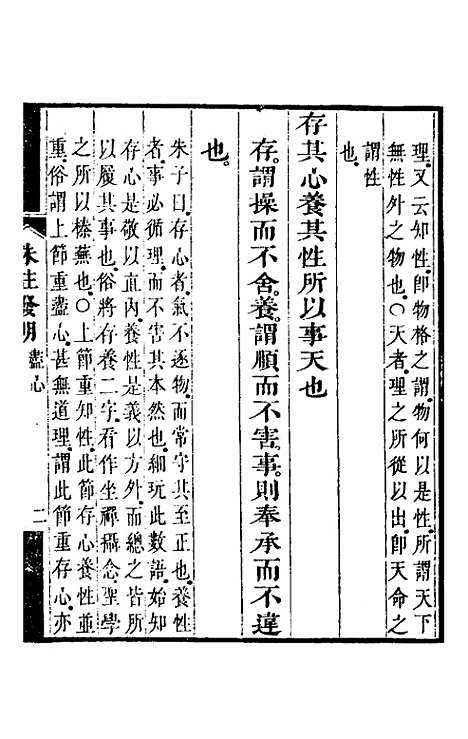 理又云知性卽物格之謂物何以是性所謂天下
無性外之物也○天者理之所從以出卽天命之
謂性
也
存其心養其性所以事天也
存謂操而不舍養謂順而不害事則奉承而不違
也
朱子曰存心者氣不逐物而常守其至正也養性
者事必循理而不害其本然也細玩此數語始知
存心是敬以直內養性是義以方外而總之皆所
以履其事也俗將存養二字看作坐禪攝念聖學
之所以榛蕪也○上節重知性此節存心養性並
重俗謂上節重盡心甚無道理謂此節重存心亦
朱註發明
盡心
二